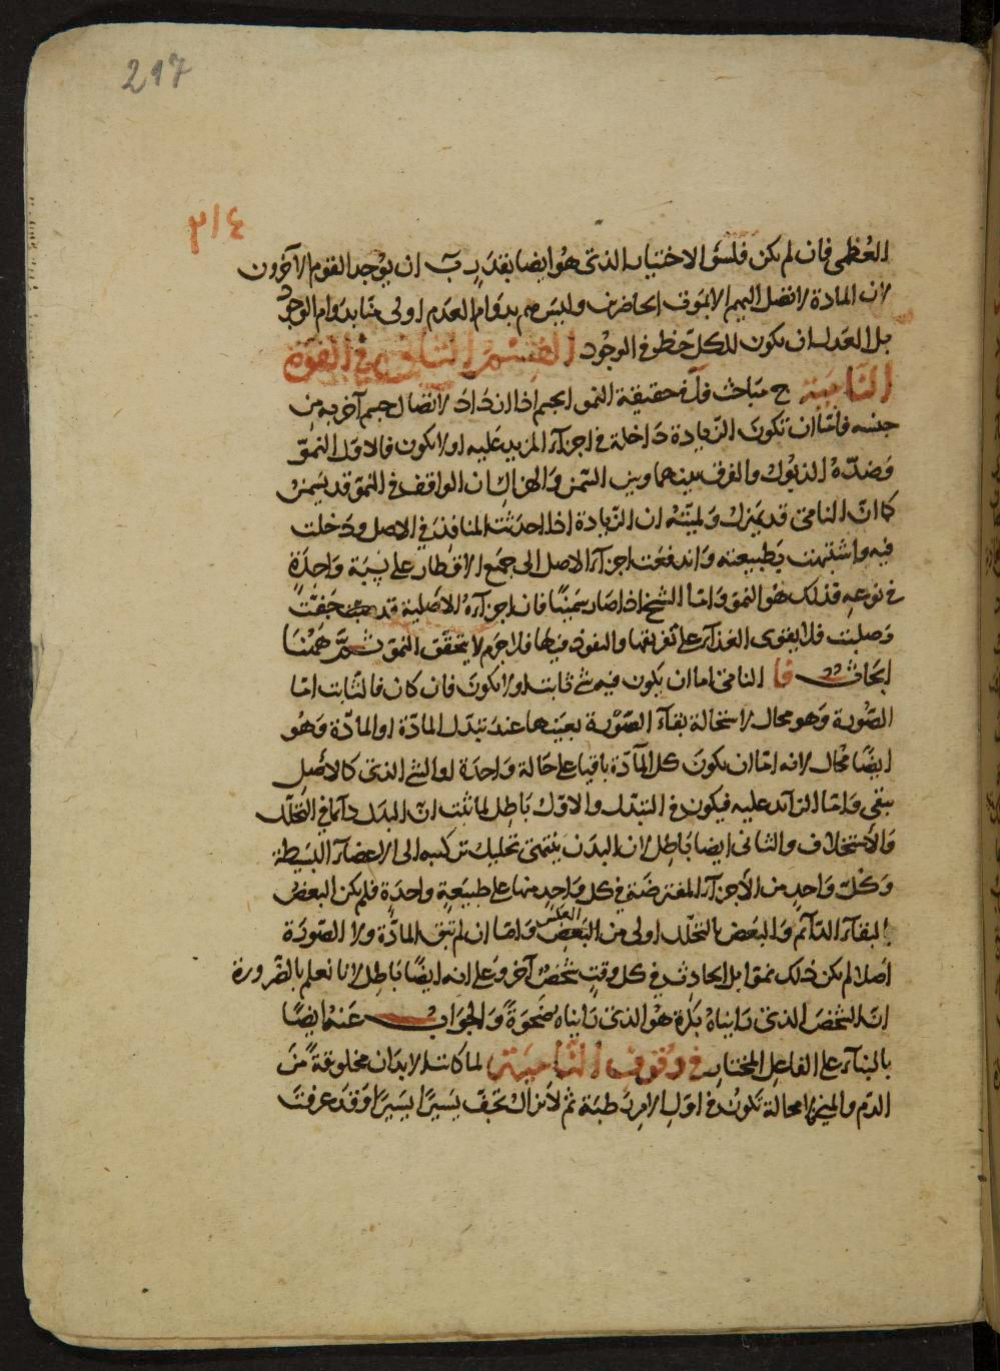 217
٣١٤
العُظمى فان لم يكن فلسَق الاختيار الذى هو ايضا بقدر ربّ ان يوجد القوم الآخرون
لان المادة لا تفضل اليهم الا بموت الحاضرين وليس هم بدوام العدم اولى منا بدوام الوجود
بل العدل ان يكون للكل حظ فى الوجود القسم الثانى فى القوة
النامية ج مباحث فى حقيقة النمو الجسم اذا ازداد لاتصال جسم آخر به من
جنسه فامّا ان تكون الزيادة داخلة فى اجزآء المزيد عليه او لا يكون فالاول النموّ
وضدّه الذبول والفرق بينهما وبين السّمن والهزال ان الواقف فى النموّ قد يسمن
كما انّ النامى قد يهزل ولميّته ان الزيادة اذا احدثت المنافذ فى الاصل ودخلت
فيه واشتبهت بطبيعته واندفعت اجزآء الاصل الى جميع الاقطار على نسبة واحدة
فى نوعه فذلك هو النمو وامّا الشيخ اذا صار سمينًا فان اجزآءه الاصلية قد جفّت
وصلبت فلا يقوى الغذآء على تفريقها والنفوذ فيها فلا جرم لا يتحقق النمو ثمّ ههنا
ابحاث فا النامى اما ان يكون فيه شئ ثابت او لا يكون فان كان فالثابت امّا
الصّورة وهو محال لاستحالة بقآء الصّورة بعينها عند تبدّل المادّة او المادّة وهو
ايضًا محال لانه امّا ان يكون كل المآدّة باقيا على حالة واحدة او الشئ الذى كالاصل
يبقى وامّا الزائد عليه فيكون فى التبدّل والاوّل باطل لما ثبت انّ البدن دآئما فى التحلّل
والاستخلاف والثانى ايضا باطل لان البدن ينتهى تحليل تركيبه الى الاعضآء البسيطة
وكلّ واحد من الأجزآء المفترضة فى كل واحد منها على طبيعة واحدة فلم يكن البعض
بالبقآء الدّآئم والبعض بالتحلّل اولى من العكس البعض وامّا ان لم تبق المادّة ولا الصّورة
اصلا لم يكن ذلك نموّا بل الحادث فى كل وقت شخصٌ آخر وعلى انه ايضًا باطل لانا نعلم بالضّرورة
انّ الشّخص الذى رايناه بكرة هو الذى رايناه ضحوةً والجواب عنه ايضًا
بالبنآء على الفاعل المختار فى وقوف النّامية لما كانت الابدان مخلوقةً من
الدّم والمنى لا محالة تكون فى اول الامر رطبة ثم لا تزال تجفّ يسيرًا يسيرًا وقد عرفتَ